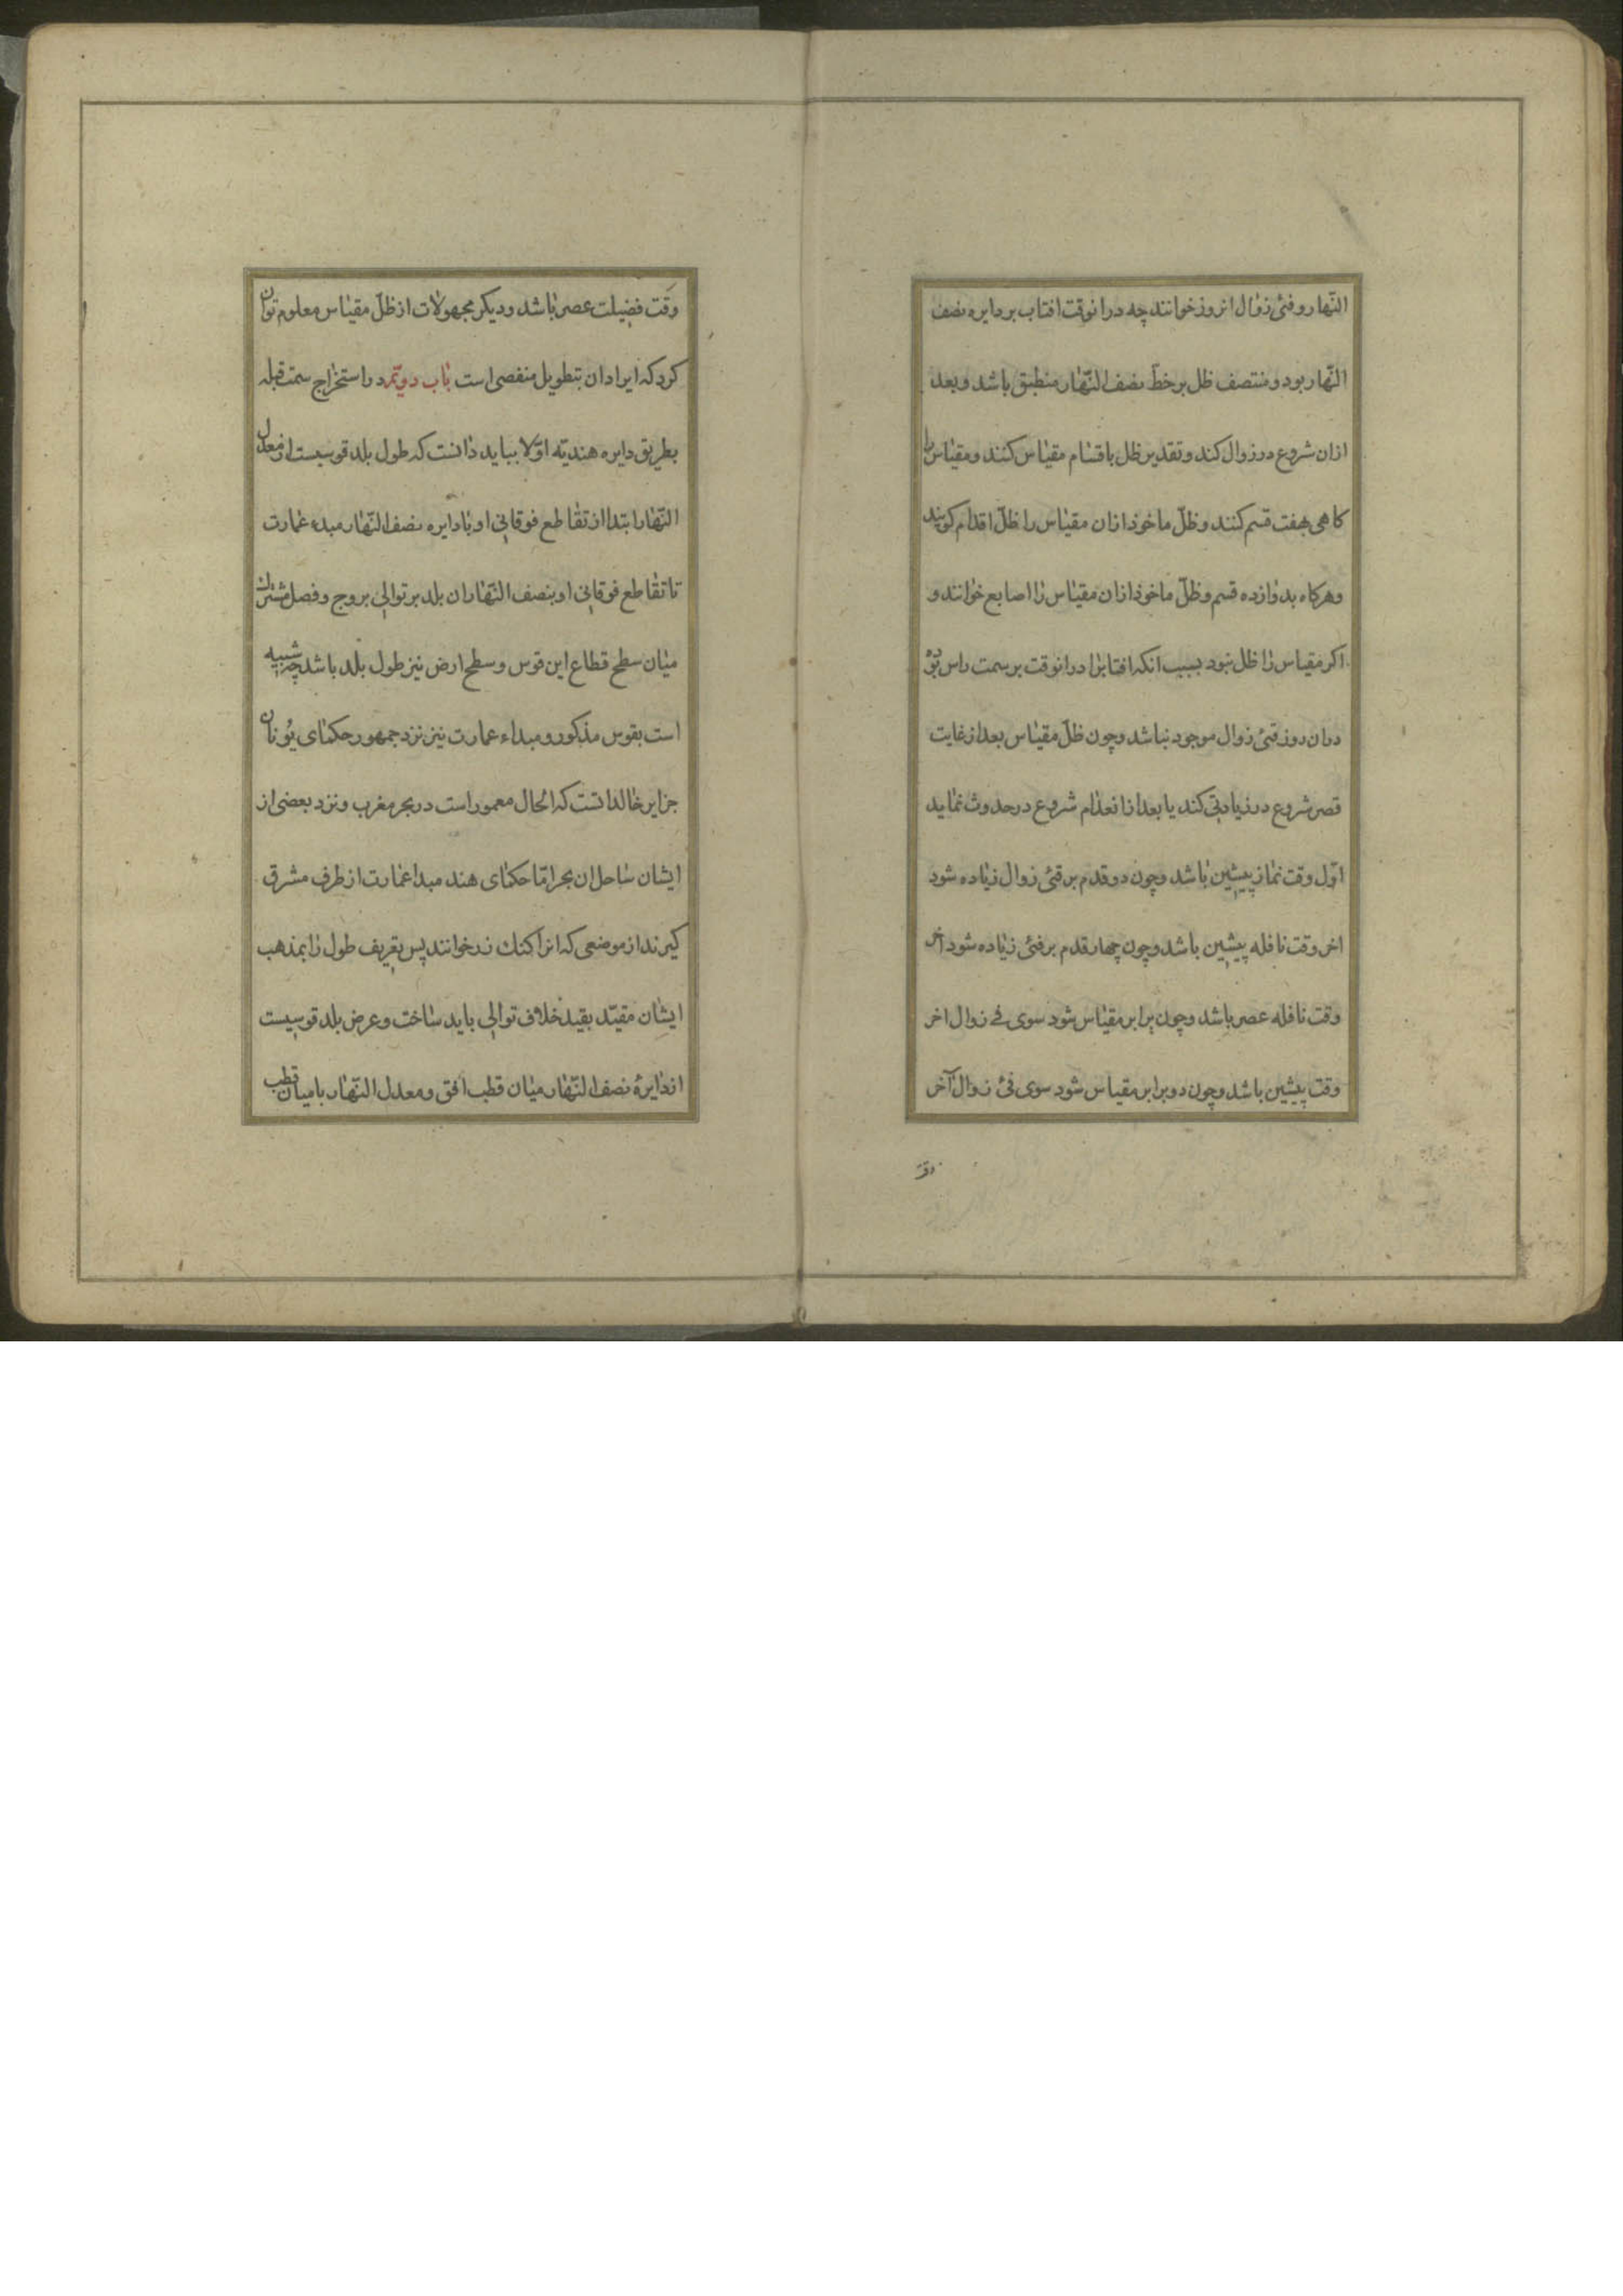 النّهار و فئ زوال انروز خوانند چه درانوقت افتاب بر دایره نصف
النّهار بود و منتصف ظل بر خطّ نصف النّهار منطبق باشد و بعد
ازان شروع در زوال کند و تقدیر ظل باقسام مقیاس کنند و مقیاس را
کاهی بهفت قسم کنند و ظلّ ماخوذ ازان مقیاس را ظلّ اقدام کویند
و هرکاه بدوازده قسم و ظلّ ماخوذ ازان مقیاس را اصابع خوانند و
اکر مقیاس را ظل نبود بسبب انکه افتابرا درانوقت بر سمت راس بود
دران روز فئ زوال موجود نباشد و چون ظلّ مقیاس بعد از غایت
قصر شروع در زیادتی کند یا بعد از انعدام شروع در حدوث نماید
اوّل وقت نماز پیشین باشد و چون دو قدم بر فئ زوال زیاده شود
اخر وقت نافله پیشین باشد و چون چهار قدم بر فئ زیاده شود اخر
وقت نافله عصر باشد و چون برابر مقیاس شود سوی فے زوال اخر
وقت پیشین باشد و چون دو برابر مقیاس شود سوی فئ زوال آخر
وقت
وقت فضیلت عصر باشد و دیکر مجهولات از ظلّ مقیاس معلوم توان
کرد که ایراد ان بتطویل منفصی است باب دویّم در استخراج سمت قبله
بطریق دایره هندیّه اوّلا بباید دانست که طول بلد قوسیست از معدل
النّهار ابتدا از تقاطع فوقانی او با دایره نصف النّهار مبدء عمارت
تا تقاطع فوقانی او بنصف النّهار ان بلد بر توالی بروج و فصل مشترک
میان سطح قطاع این قوس و سطح ارض نیز طول بلد باشد چه شبیه
است بقوس مذکور و مبداء عمارت نیز نزد جمهور حکمای یونان
جزایر خالداتست که الحال معمور است در بحر مغرب و نزد بعضی از
ایشان ساحل ان بحر امّا حکمای هند مبدا عمارت از طرف مشرق
کیرند از موضعی که انرا کنک دز خوانند پس تعریف طول را بمذهب
ایشان مقیّد بقید خلاف توالی باید ساخت و عرض بلد قوسیست
از دایرهٔ نصف النّهار میان قطب افق و معدل النّهار با میان قطب